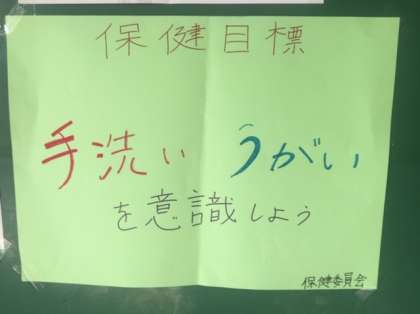 保健目標
手洗い うがい
を意識しよう
保健委員会